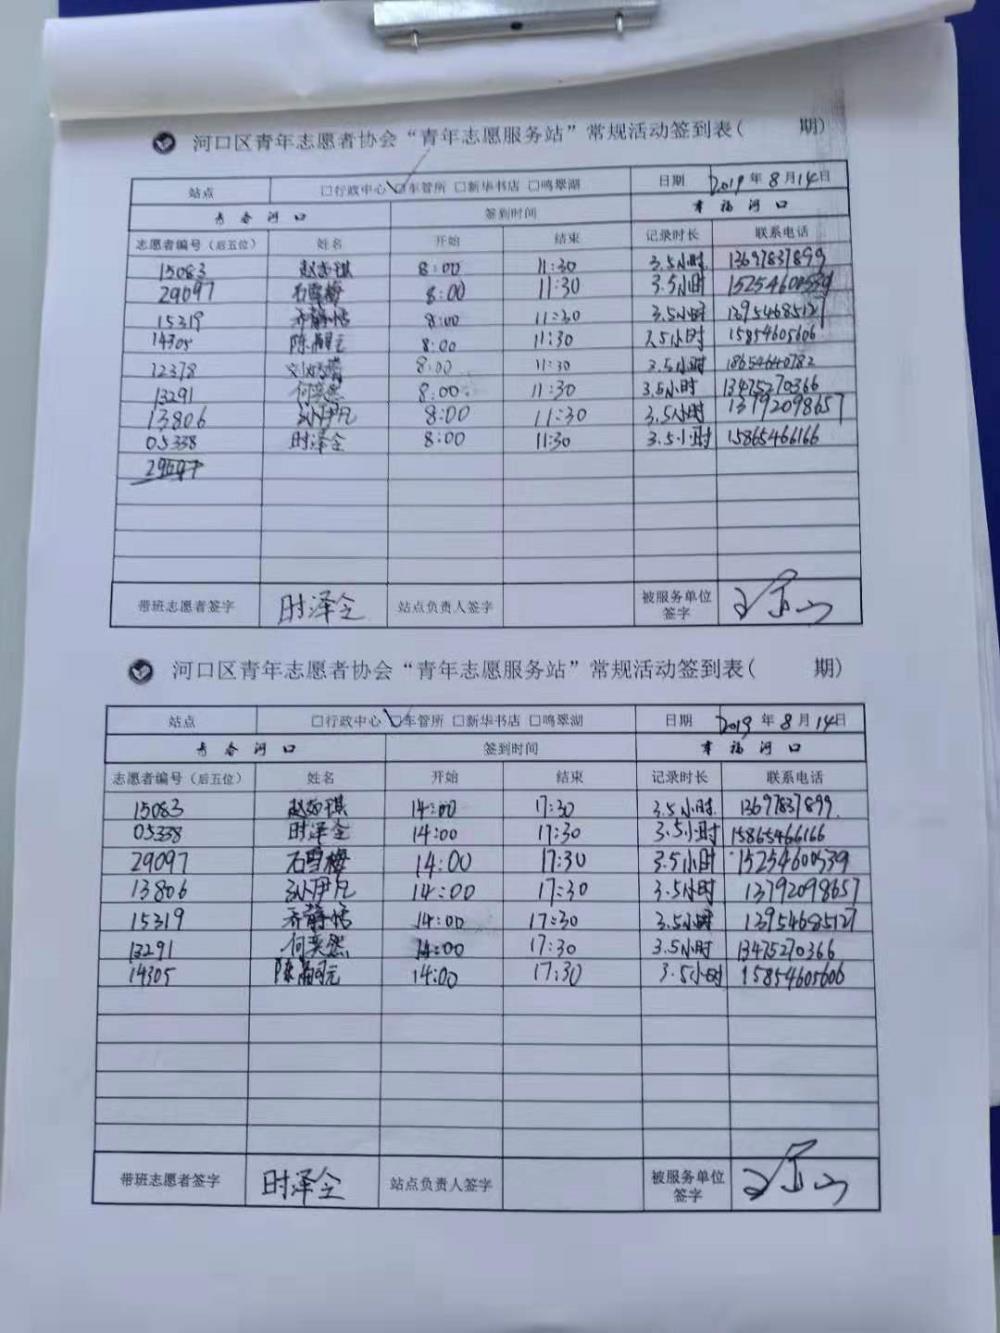 河口区青年志愿者协会“青年志愿服务站”常规活动签到表( 期)
站点 □行政中心 □车管所 □新华书店 □鸣翠湖 日期 2019年8月14日
青春河口 签到时间 幸福河口
志愿者编号（后五位） 姓名 开始 结束 记录时长 联系电话
15083 8:00 11:30 3.5小时 13697837899
29097 石雪梅 8:00 11:30 3.5小时 15254600539
15319 乔静恬 8:00 11:30 3.5小时 13954685127
14305 8:00 11:30 3.5小时 15854605606
12378 8:00 11:30 3.5小时 18654640782
13291 何奕然 8:00 11:30 3.5小时 13475270366
13806 孙伊凡 8:00 11:30 3.5小时 13792098657
05338 时泽仝 8:00 11:30 3.5小时 15865466166
带班志愿者签字 时泽仝 站点负责人签字 被服务单位
签字
河口区青年志愿者协会“青年志愿服务站”常规活动签到表( 期)
站点 □行政中心 □车管所 □新华书店 □鸣翠湖 日期 2019年8月14日
青春河口 签到时间 幸福河口
志愿者编号（后五位） 姓名 开始 结束 记录时长 联系电话
15083 14:00 17:30 3.5小时 13697837899
05338 时泽仝 14:00 17:30 3.5小时 15865466166
29097 石雪梅 14:00 17:30 3.5小时 15254600539
13806 孙伊凡 14:00 17:30 3.5小时 13792098657
15319 乔静恬 14:00 17:30 3.5小时 13954685127
13291 何奕然 14:00 17:30 3.5小时 13475270366
14305 14:00 17:30 3.5小时 15854605606
带班志愿者签字 时泽仝 站点负责人签字 被服务单位
签字